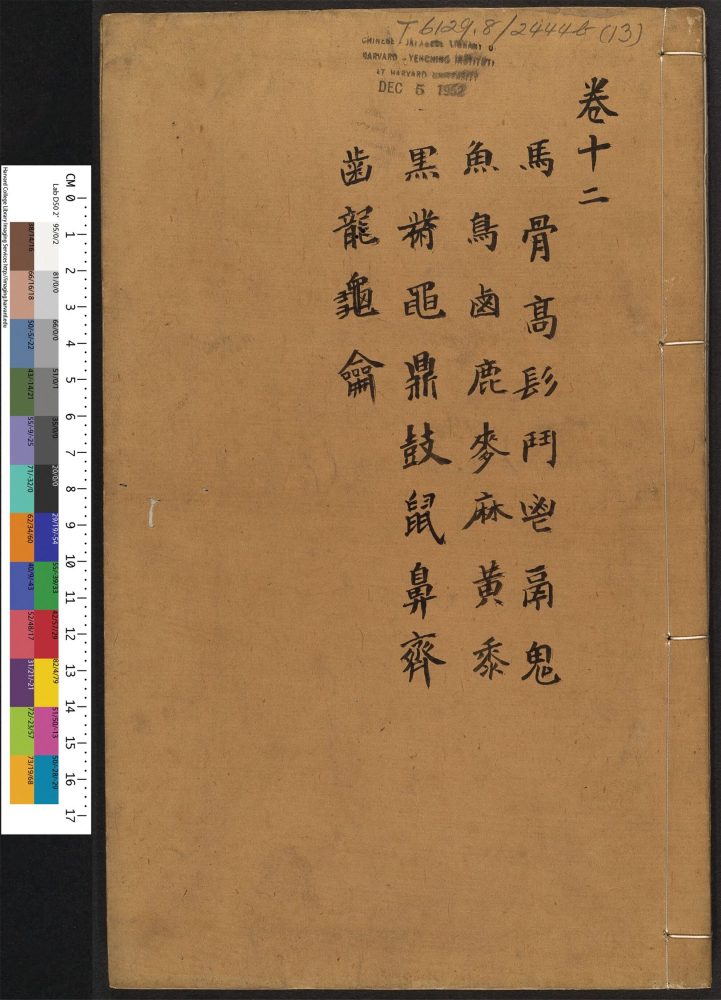 T 6129.8/2444b (13)
CHINESE - JAPANESE LIBRARY
HARVARD - YENCHING INSTITUTE
AT HARVARD UNIVERSITY
DEC 5 1952
卷十二
馬骨高髟鬥鬯鬲鬼
魚鳥鹵鹿麥麻黃黍
黑黹黽鼎鼓鼠鼻齊
齒龍龜龠
CM 0 1 2 3 4 5 6 7 8 9 10 11 12 13 14 15 16 17
Lab D50 2° 95/0/2 81/0/0 66/0/0 51/0/1 35/0/0 20/0/0 29/19/-54 55/-39/33 42/57/29 82/4/79 51/50/-13 50/-28/-29
38/14/16 66/16/18 50/-5/-22 43/-14/21 55/-9/-25 71/-32/0 62/34/60 40/9/-43 52/48/17 31/21/-21 72/-23/57 73/19/68
Harvard College Library Imaging Services http://imaging.harvard.edu